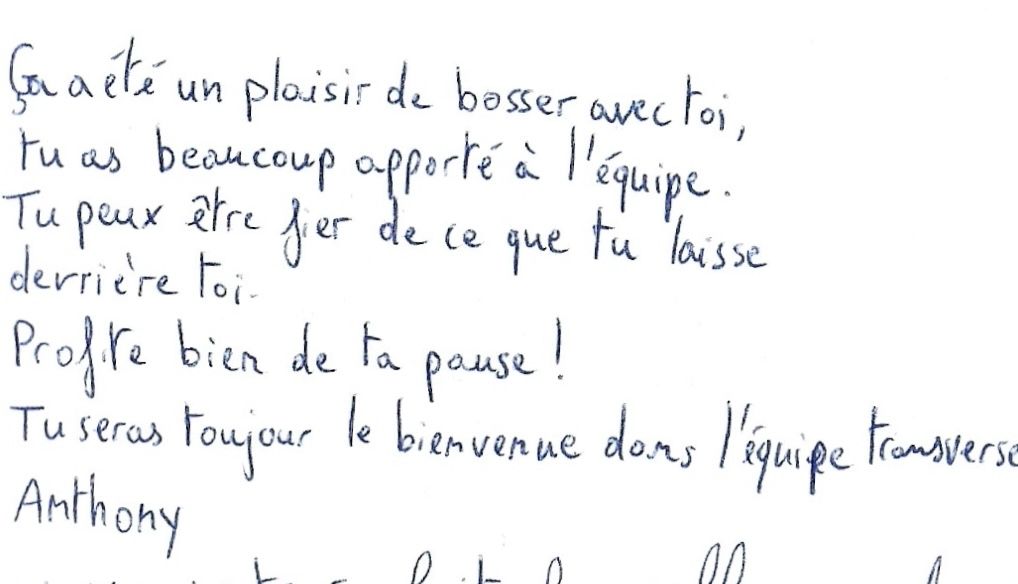 Ça a été un plaisir de bosser avec toi,
tu as beaucoup apporté à l'équipe.
Tu peux être fier de ce que tu laisse
derrière toi.
Profite bien de ta pause !
Tu seras toujour le bienvenue dans l'équipe transverse
Anthony